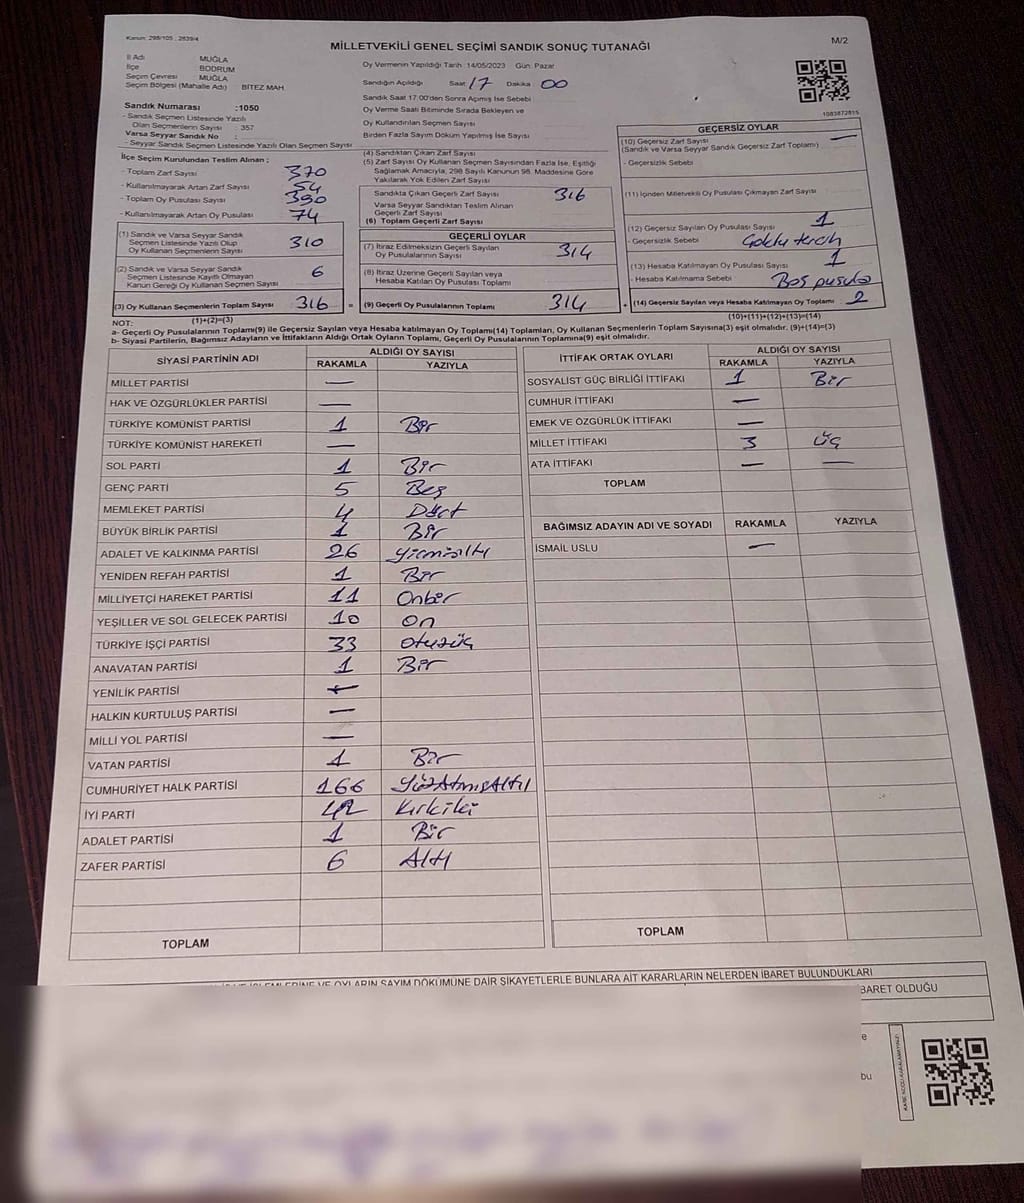 Kanun: 298/105 , 2839/4
MİLLETVEKİLİ GENEL SEÇİMİ SANDIK SONUÇ TUTANAĞI
M/2
İl Adı MUĞLA
İlçe BODRUM
Seçim Çevresi MUĞLA
Seçim Bölgesi (Mahalle Adı) BİTEZ MAH.
Sandık Numarası :1050
- Sandık Seçmen Listesinde Yazılı
Olan Seçmenlerin Sayısı 357
Varsa Seyyar Sandık No :
- Seyyar Sandık Seçmen Listesinde Yazılı Olan Seçmen Sayısı
İlçe Seçim Kurulundan Teslim Alınan ;
- Toplam Zarf Sayısı 370
- Kullanılmayarak Artan Zarf Sayısı 54
- Toplam Oy Pusulası Sayısı 390
- Kullanılmayarak Artan Oy Pusulası 74
(1) Sandık ve Varsa Seyyar Sandık
Seçmen Listesinde Yazılı Olup
Oy Kullanan Seçmenlerin Sayısı 310
(2) Sandık ve Varsa Seyyar Sandık
Seçmen Listesinde Kayıtlı Olmayan
Kanun Gereği Oy Kullanan Seçmen Sayısı 6
(3) Oy Kullanan Seçmenlerin Toplam Sayısı 316 =
(1)+(2)=(3)
Oy Vermenin Yapıldığı Tarih 14/05/2023 Gün: Pazar
Sandığın Açıldığı Saat 17 Dakika 00
Sandık Saat 17.00'den Sonra Açmış İse Sebebi
Oy Verme Saati Bitiminde Sırada Bekleyen ve
Oy Kullandırılan Seçmen Sayısı
Birden Fazla Sayım Döküm Yapılmış İse Sayısı
(4) Sandıktan Çıkan Zarf Sayısı
(5) Zarf Sayısı Oy Kullanan Seçmen Sayısından Fazla İse, Eşitliği
Sağlamak Amacıyla, 298 Sayılı Kanunun 98. Maddesine Göre
Yakılarak Yok Edilen Zarf Sayısı
Sandıkta Çıkan Geçerli Zarf Sayısı 316
Varsa Seyyar Sandıktan Teslim Alınan
Geçerli Zarf Sayısı
(6) Toplam Geçerli Zarf Sayısı
GEÇERLİ OYLAR
(7) İtiraz Edilmeksizin Geçerli Sayılan
Oy Pusulasının Sayısı 314
(8) İtiraz Üzerine Geçerli Sayılan veya
Hesaba Katılan Oy Pusulası Toplamı
(9) Geçerli Oy Pusulalarının Toplamı 314 +
1083872815
GEÇERSİZ OYLAR
(10) Geçersiz Zarf Sayısı —
(Sandık ve Varsa Seyyar Sandık Geçersiz Zarf Toplamı)
- Geçersizlik Sebebi
(11) İçinden Milletvekili Oy Pusulası Çıkmayan Zarf Sayısı
(12) Geçersiz Sayılan Oy Pusulası Sayısı 1
- Geçersizlik Sebebi Çoklu tercih
(13) Hesaba Katılmayan Oy Pusulası Sayısı 1
- Hesaba Katılmama Sebebi Boş pusula
(14) Geçersiz Sayılan veya Hesaba Katılmayan Oy Toplamı 2
(10)+(11)+(12)+(13)=(14)
NOT:
a- Geçerli Oy Pusulalarının Toplamı(9) ile Geçersiz Sayılan veya Hesaba katılmayan Oy Toplamı(14) Toplamları, Oy Kullanan Seçmenlerin Toplam Sayısına(3) eşit olmalıdır. (9)+(14)=(3)
b- Siyasi Partilerin, Bağımsız Adayların ve İttifakların Aldığı Ortak Oyların Toplamı, Geçerli Oy Pusulalarının Toplamına(9) eşit olmalıdır.
SİYASİ PARTİNİN ADI ALDIĞI OY SAYISI
RAKAMLA YAZIYLA
MİLLET PARTİSİ —
HAK VE ÖZGÜRLÜKLER PARTİSİ —
TÜRKİYE KOMÜNİST PARTİSİ 1 Bir
TÜRKİYE KOMÜNİST HAREKETİ —
SOL PARTİ 1 Bir
GENÇ PARTİ 5 Beş
MEMLEKET PARTİSİ 4 Dört
BÜYÜK BİRLİK PARTİSİ 1 Bir
ADALET VE KALKINMA PARTİSİ 26 Yirmialtı
YENİDEN REFAH PARTİSİ 1 Bir
MİLLİYETÇİ HAREKET PARTİSİ 11 Onbir
YEŞİLLER VE SOL GELECEK PARTİSİ 10 On
TÜRKİYE İŞÇİ PARTİSİ 33 otuzüç
ANAVATAN PARTİSİ 1 Bir
YENİLİK PARTİSİ —
HALKIN KURTULUŞ PARTİSİ —
MİLLİ YOL PARTİSİ —
VATAN PARTİSİ 1 Bir
CUMHURİYET HALK PARTİSİ 166 YüzAtmışAltı
İYİ PARTİ 42 Kırkiki
ADALET PARTİSİ 1 Bir
ZAFER PARTİSİ 6 Altı
TOPLAM
İTTİFAK ORTAK OYLARI ALDIĞI OY SAYISI
RAKAMLA YAZIYLA
SOSYALİST GÜÇ BİRLİĞİ İTTİFAKI 1 Bir
CUMHUR İTTİFAKI —
EMEK VE ÖZGÜRLÜK İTTİFAKI —
MİLLET İTTİFAKI 3 üç
ATA İTTİFAKI — —
TOPLAM
BAĞIMSIZ ADAYIN ADI VE SOYADI RAKAMLA YAZIYLA
İSMAİL USLU —
TOPLAM
İŞLEMLERİNE VE OYLARIN SAYIM DÖKÜMÜNE DAİR ŞİKAYETLERLE BUNLARA AİT KARARLARIN NELERDEN İBARET BULUNDUKLARI
BARET OLDUĞU